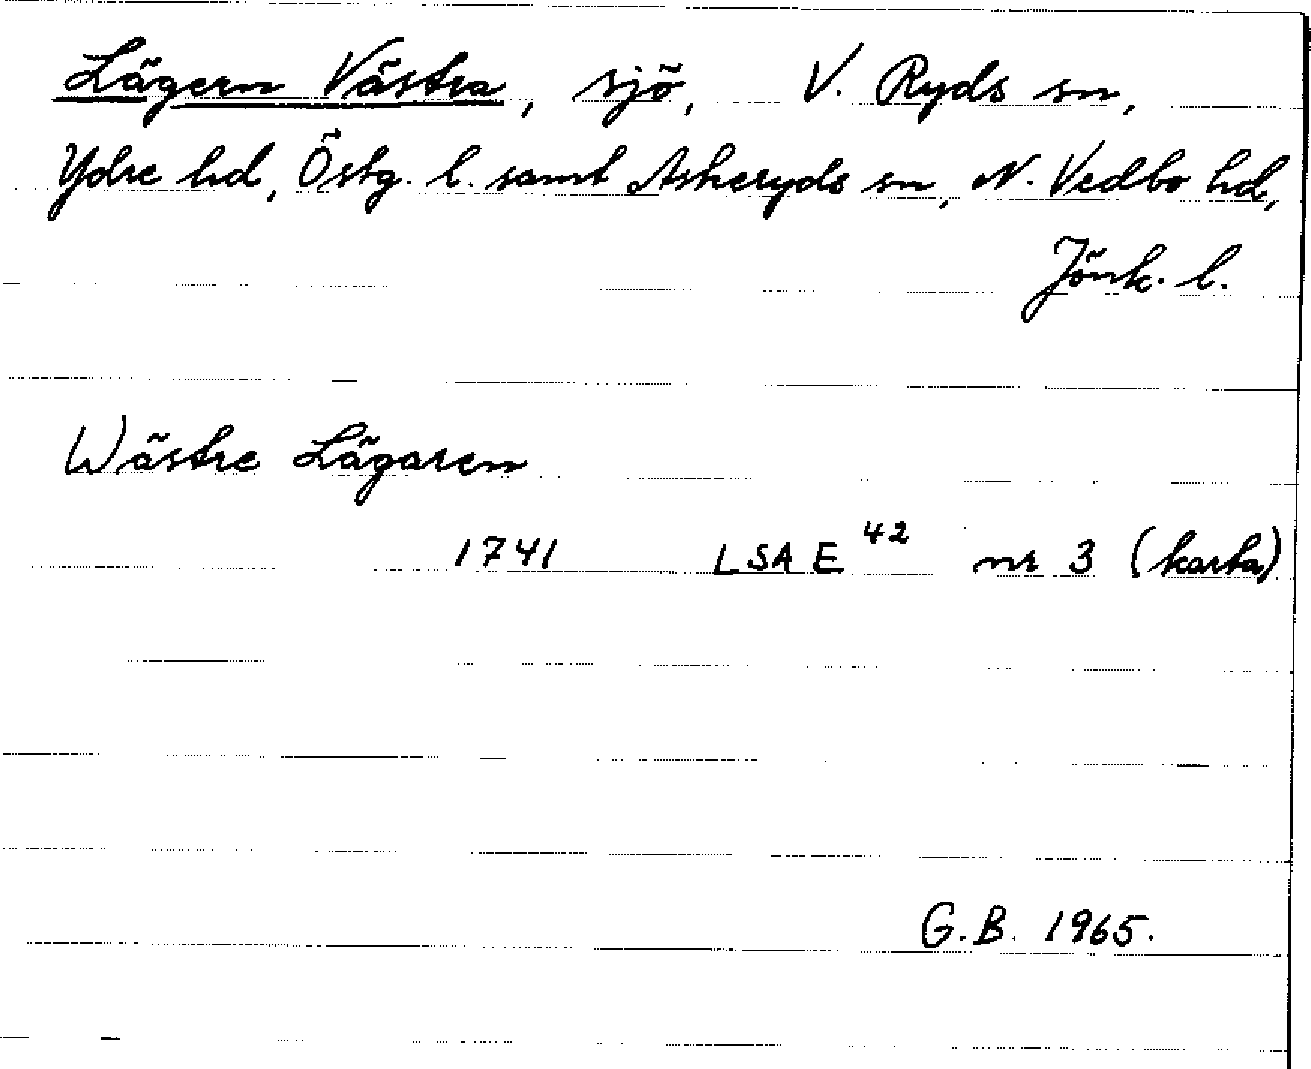 Lägern Västra, sjö, V. Ryds sn,
Ydre hd, Östg. l. samt Askeryds sn, N. Vedbo hd,
Jönk. l.
Wästre Lägaren
1741 LSA E 42 nr 3 (karta)
G.B. 1965.